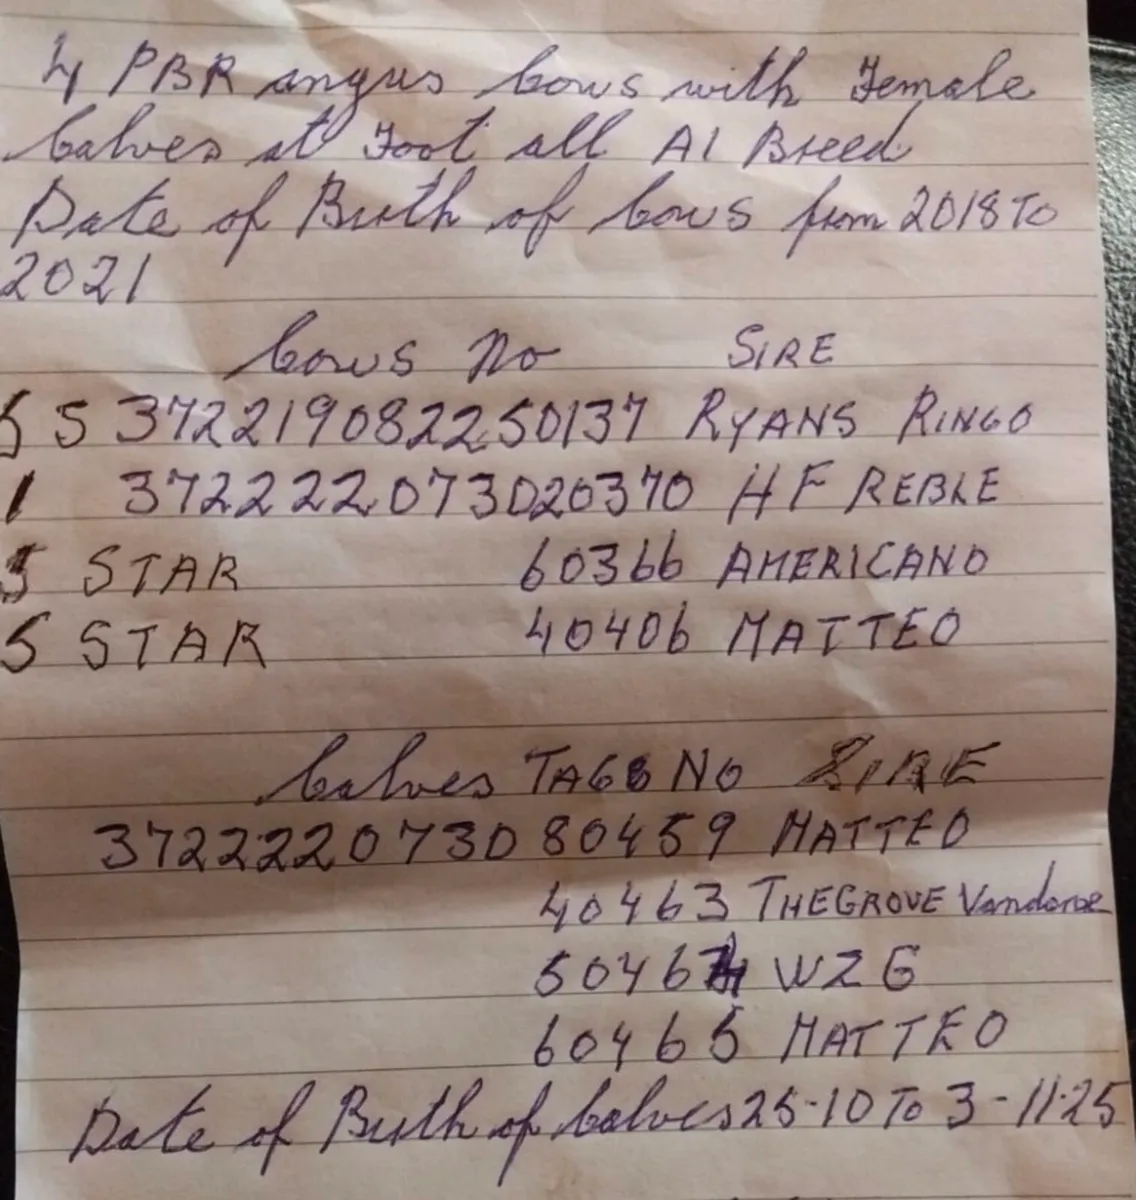 4 PBR angus Cows with Female
Calves at Foot all AI Breed
Date of Birth of Cows from 2018 To
2021
Cows No SIRE
5 S 372219082250137 RYANS RINGO
1 372222073020370 HF REBLE
5 STAR 60366 AMERICANO
5 STAR 40406 MATTEO
Calves TAGS NO SIRE
372222073080459 MATTEO
40463 THEGROVE
50464 WZG
60465 MATTEO
Date of Birth of Calves 25-10 To 3-11-25